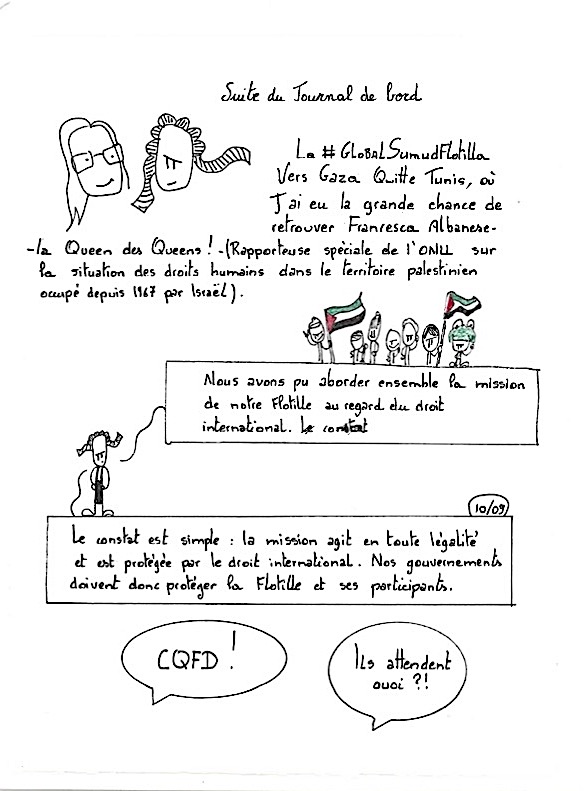 Suite du Journal de bord
La # GLOBALSumudFlotilla
Vers Gaza Quitte Tunis, où
J'ai eu la grande chance de
retrouver Francesca Albanese-
-la Queen des Queens ! -(Rapporteuse spéciale de l'ONU sur
la situation des droits humains dans le territoire palestinien
occupé depuis 1967 par Israël).
Nous avons pu aborder ensemble la mission
de notre Flotille au regard du droit
international. Le constat
10/09
Le constat est simple : la mission agit en toute légalité
et est protégée par le droit international. Nos gouvernements
doivent donc protéger la Flotille et ses participants.
CQFD !
Ils attendent
quoi ?!